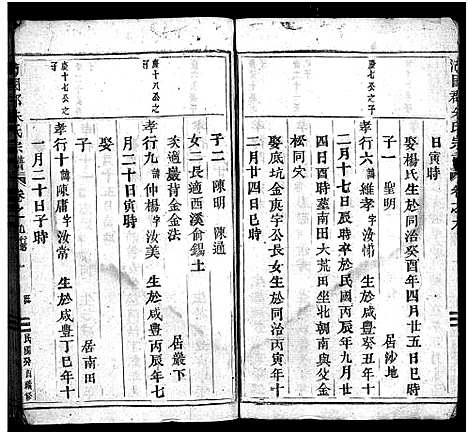 日寅時
娶楊氏生於同治癸酉年四月廿五日巳時
子一 聖明
居沙地
慶七公之子
孝行六諱維孝字汝悌 生於咸豐癸丑年十
二月十七日辰時卒於民國丙辰年九月廿
四日酉時墓南田大荒田坐北朝南與公金
松同穴
娶底坑金庚宇公長女生於同治丙寅年十
二月廿四日巳時
子二 陳明 陳通
女二長適西溪俞錫土
次適巖背金金法
居巖下
慶十八公之子
孝行九諱仲楊字汝美 生於咸豐丙辰年七
月二十日寅時
娶
居南田
慶十七公之子
孝行十諱陳庸字汝常 生於咸豐丁巳年十
一月二十日子時
沛國郡朱氏宗譜